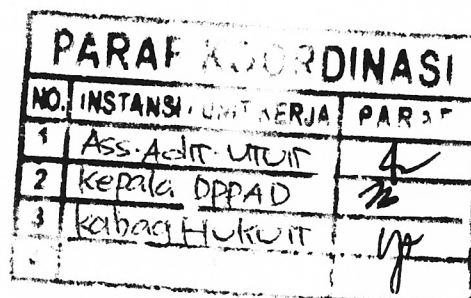 PARAF KOORDINASI
NO. INSTANSI / UNIT KERJA PARAF
1 Ass. Adm. Umum
2 Kepala DPPAD
3 Kabag Hukum